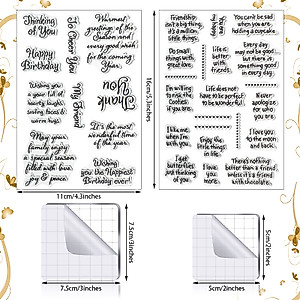 Thinking of You
Happy Birthday
To Cheer You
Warmest greetings of the Season and every good wish for the coming Year.
My Friend
Thank You
Wishing you a year of lovely hugs, sunny faces & sweet wishes
It's the most wonderful time of the year.
May your family enjoy a special season filled with love, joy & peace
Wishing you the Happiest Birthday ever!
16cm/6.3inches
11cm/4.3inches
Friendship isn't a big thing, it's a million little things.
You can't be sad when you are holding a cupcake
Do Small things with great love.
Life is better with friends.
Every day may not be good but there is something good in every day
I'm willing to risk the Cooties if you are.
Life does not have to be perfect to be wonderful
Never apologize for who you are.
I like me when I'm with you.
Enjoy the little things in life.
Love you to the moon and back.
I get butterflies just thinking of you.
There's nothing better than a friend unless it's a friend with chocolate.
7.5cm/3inches
7.5cm/3inches
5cm/2inches
5cm/2inches